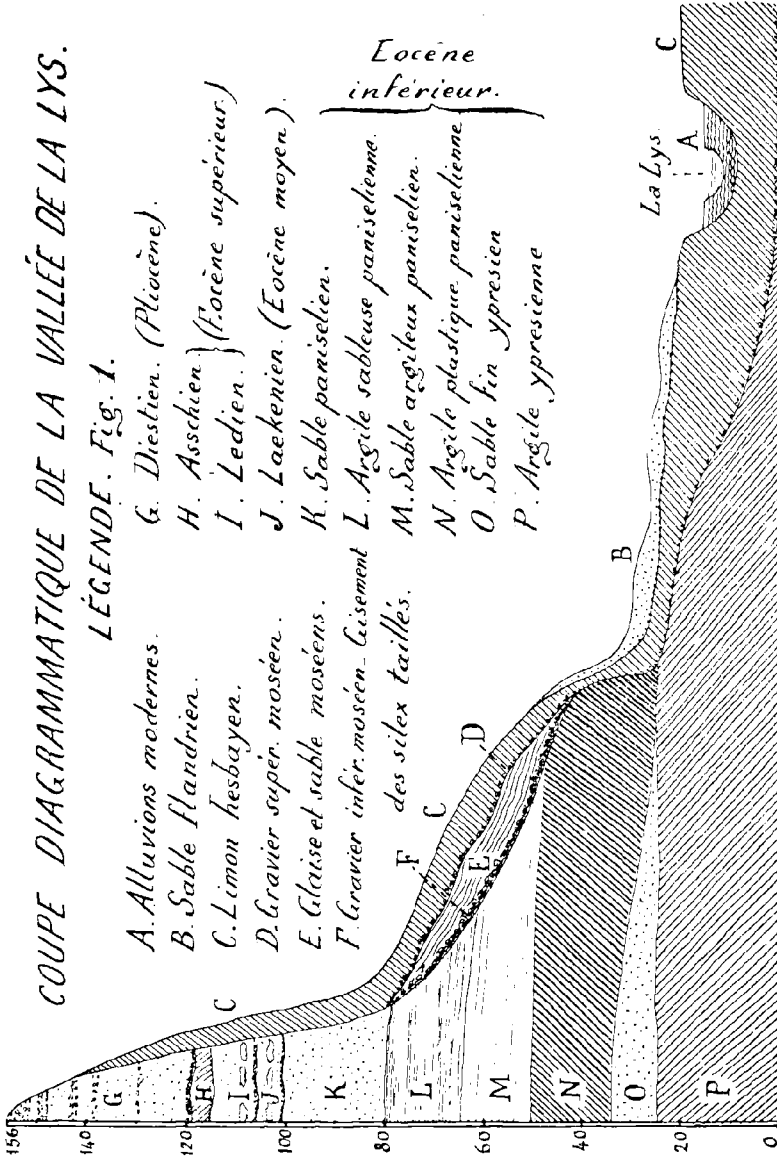 COUPE DIAGRAMMATIQUE DE LA VALLÉE DE LA LYS.
LÉGENDE. Fig. 1.
A. Alluvions modernes.
B. Sable flandrien.
C. Limon hesbayen.
D. Gravier supér. moséen.
E. Glaise et sable moséens.
F. Gravier infér. moséen_Gisement
des silex taillés.
G. Diestien. (Pliocène).
H. Asschien
I. Ledien.
(Eocène supérieur)
J. Laekenien. (Eocène moyen).
K. Sable paniselien.
L. Argile sableuse paniselienne.
M. Sable argileux paniselien.
N. Argile plastique paniselienne
O. Sable fin ypresien
P. Argile ypresienne
Eocène
inférieur.
156
140
120
100
80
60
40
20
0
G
H
I
J
K
L
M
N
O
P
C
F
C
E
D
B
La Lys
A
C